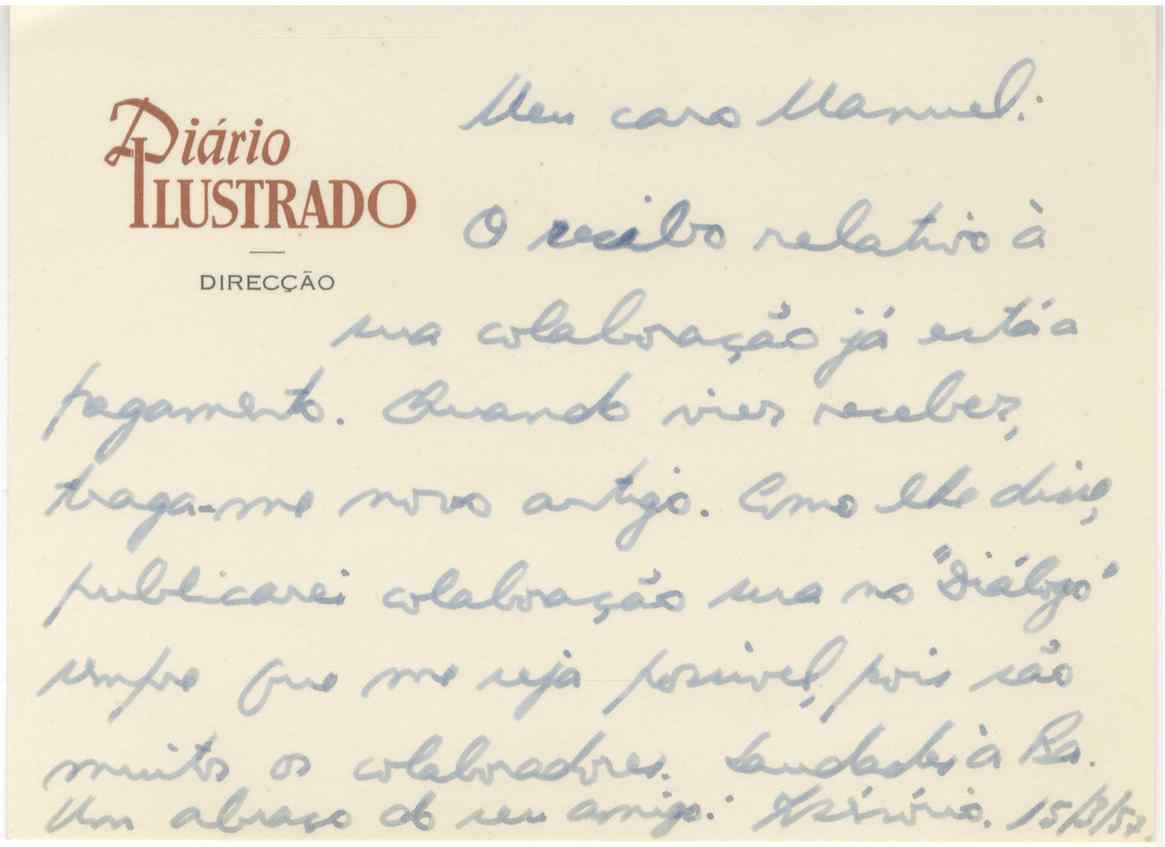 Diário
ILUSTRADO
DIRECÇÃO
Meu caro Manuel:
O recibo relativo à
sua colaboração já está a
pagamento. Quando vier receber,
traga-me novo artigo. Como lhe disse,
publicarei colaboração sua no "Diálogo"
sempre que me seja possível, pois são
muitos os colaboradores. Saudades à
Um abraço do seu amigo: